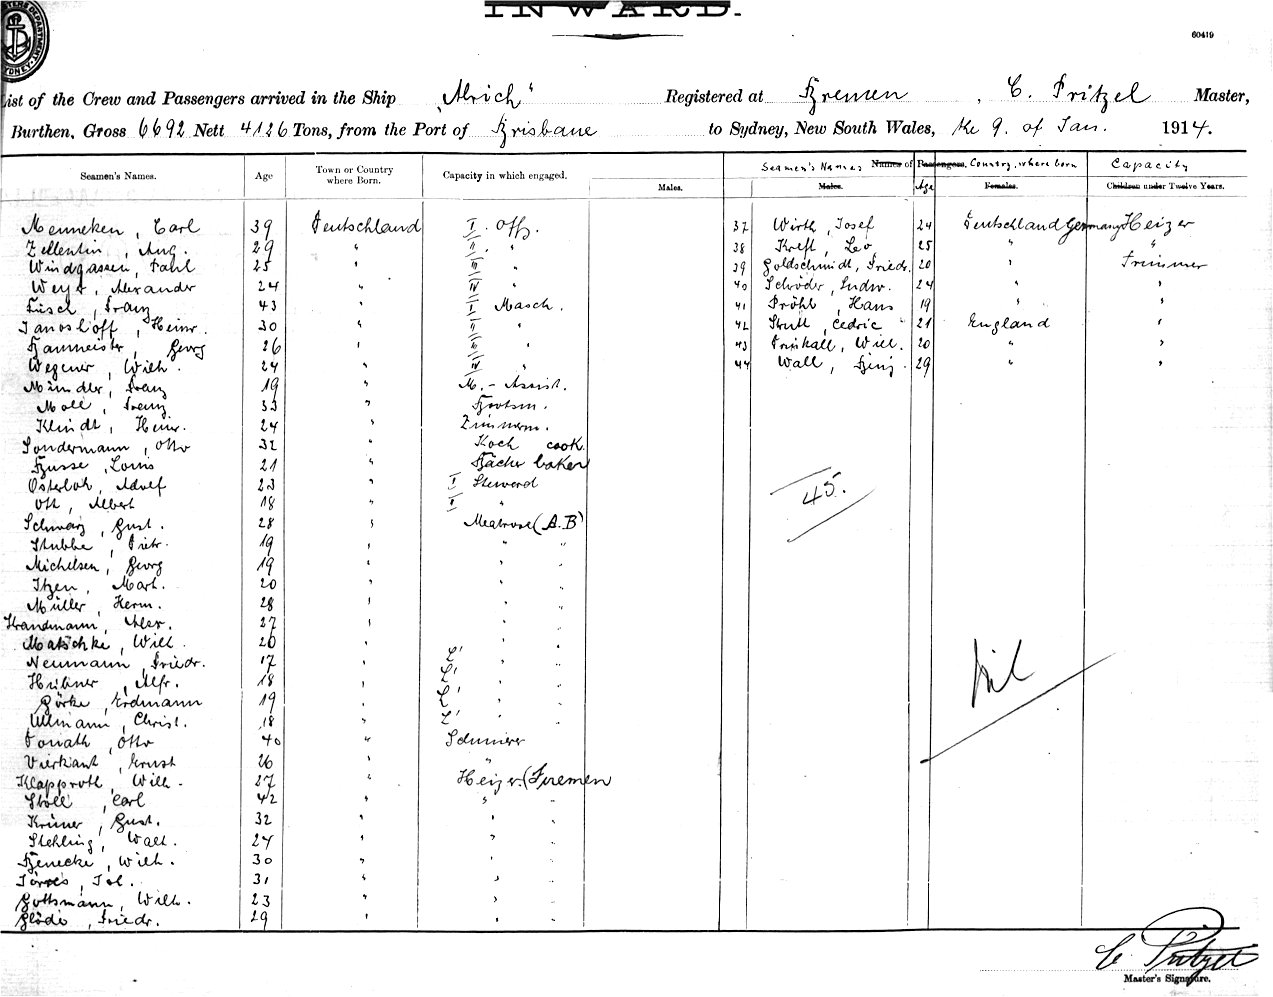 INWARD.
60419
List of the Crew and Passengers arrived in the Ship "Alrich" Registered at Bremen, C. Pritzel Master,
Burthen, Gross 6692 Nett 4126 Tons, from the Port of Brisbane to Sydney, New South Wales, the 9. of Jan. 1914.
Seamen's Names. Age Town or Country where Born. Capacity in which engaged. Males. Seamen's Names Names of Passengers. Country, where born Capacity
Males. Age Females. Children under Twelve Years.
Menneken, Carl 39 Deutschland I. Off. 37 Wirth, Josef 24 Deutschland Germany Heizer
Zellentin, Aug. 29 " II. " 38 Kreft, Leo 25 " "
Windgassen, Paul 25 " III. " 39 Goldschmidt, Friedr. 20 " Trimmer
Weyt, Alexander 24 " IV " 40 Schröder, Ludw. 24 " "
Franz 43 " I Masch. 41 Pröhl, Hans 19 " "
Janoshoff, Heinr. 30 " II " 42 Strutt, Cedric 21 England "
Baumeister, Georg 26 " III " 43 Will. 20 " "
Wegener, Wilh. 24 " IV " 44 Wall, Benj. 29 " "
Mündler, Franz 19 " M.-Assist.
Moll, Franz 33 " Bootsm.
Klindt, Heinr. 24 " Zimmerm.
Sondermann, Otto 32 " Koch cook
Busse, Louis 21 " Bäcker baker
Osterloh, Adolf 23 " I Steward
Ott, Albert 18 " II "
Schwarz, Gust. 28 " Matrose (A.B)
Stubbe, Dietr. 19 " " "
Michelsen, Georg 19 " " "
Itzen, Mart. 20 " " "
Müller, Herm. 28 " " "
Strandmann, Alex. 27 " " "
Matschke, Wilh. 20 " " "
Neumann, Friedr. 17 " L' " "
Hübner, Alfr. 18 " L' " "
Görke, Erdmann 19 " L' " "
Ullmann, Christ. 18 " L' " "
Donath, Otto 40 " Schmierer
Vierkant, Ernst 26 " "
Klapproth, Wilh. 27 " Heizer (Firemen
Stoll, Carl 42 " " "
Krüner, Gust. 32 " " "
Stehling, Walt. 24 " " "
Benecke, Wilh. 30 " " "
Törres, Joh. 31 " " "
Gottsmann, Wilh. 23 " " "
Glöde, Friedr. 29 " " "
45.
Nil
C. Pritzel
Master's Signature.